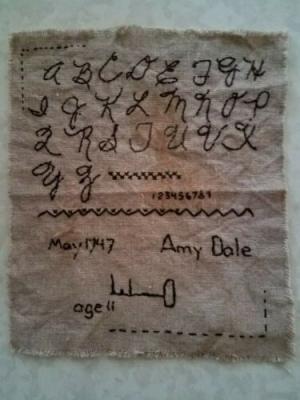 A B C D E F G H
I J K L M N O P
Q R S T U V X
Y Z
123456789
May, 1947 Amy Dale
age 11